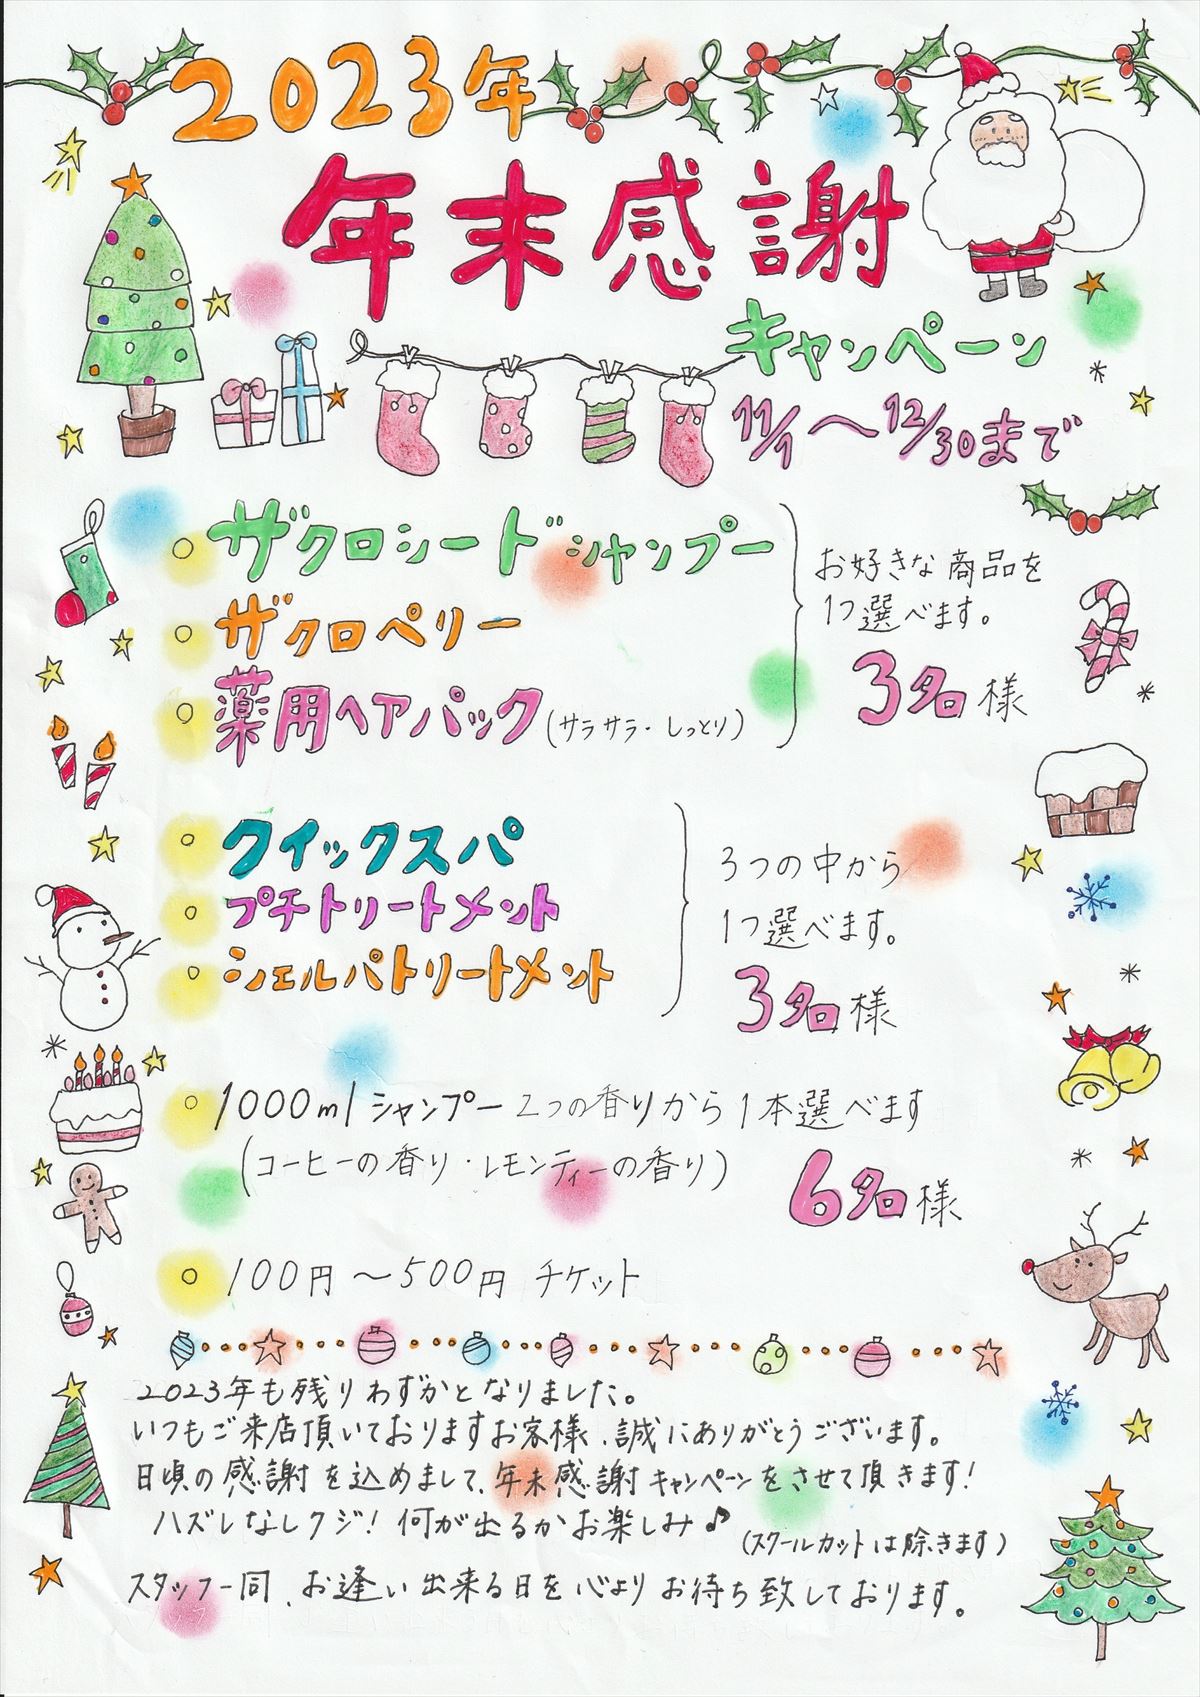 2023年
年末感謝
キャンペーン
11/1〜12/30まで
ザクロシードシャンプー
ザクロペリー
薬用ヘアパック(サラサラ・しっとり)
お好きな商品を
1つ選べます。
3名様
クイックスパ
プチトリートメント
シェルパトリートメント
3つの中から
1つ選べます。
3名様
1000mlシャンプー 2つの香りから1本選べます
(コーヒーの香り・レモンティーの香り)
6名様
100円〜500円 チケット
2023年も残りわずかとなりました。
いつもご来店頂いておりますお客様、誠にありがとうございます。
日頃の感謝を込めまして、年末感謝キャンペーンをさせて頂きます!
ハズレなしクジ!何が出るかお楽しみ♪
(スクールカットは除きます)
スタッフ一同、お逢い出来る日を心よりお待ち致しております。